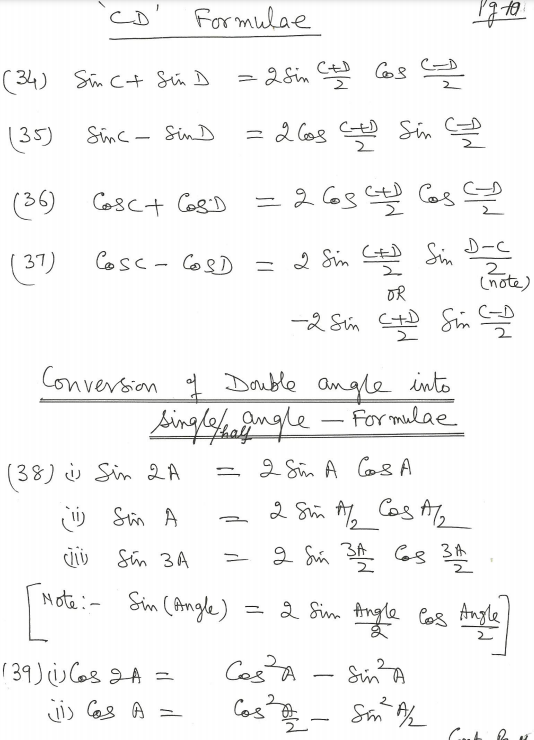 'CD' Formulae Pg 10
(34) Sin C + Sin D = 2 Sin (C+D)/2 Cos (C-D)/2
(35) Sin C - Sin D = 2 Cos (C+D)/2 Sin (C-D)/2
(36) Cos C + Cos D = 2 Cos (C+D)/2 Cos (C-D)/2
(37) Cos C - Cos D = 2 Sin (C+D)/2 Sin (D-C)/2
(note)
OR
-2 Sin (C+D)/2 Sin (C-D)/2
Conversion of Double angle into
Single/half angle - Formulae
(38) (i) Sin 2A = 2 Sin A Cos A
(ii) Sin A = 2 Sin A/2 Cos A/2
(iii) Sin 3A = 2 Sin 3A/2 Cos 3A/2
[Note:- Sin (Angle) = 2 Sin Angle/2 Cos Angle/2]
(39) (i) Cos 2A = Cos²A - Sin²A
(ii) Cos A = Cos² A/2 - Sin² A/2